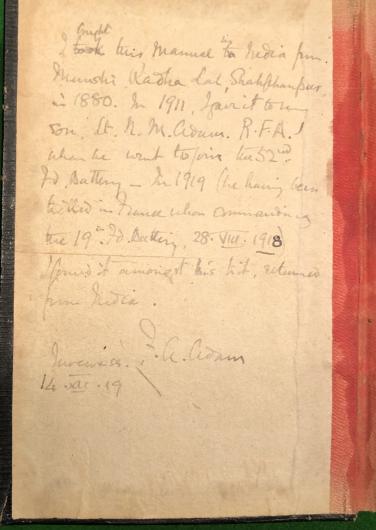 bought
I took this Manual in to India from
Munshi Radha Lal, Shahjahanpur,
in 1880. In 1911, I gave it to my
son, Lt. N. M. Adam. R.F.A.
when he went to join the 52nd
Fd. Battery – In 1919 (he having been
killed in France when commanding
the 19th Fd. Battery, 28. VIII. 1918)
I found it amongst his kit, returned
from India.
F. A. Adam
14. XII. 19